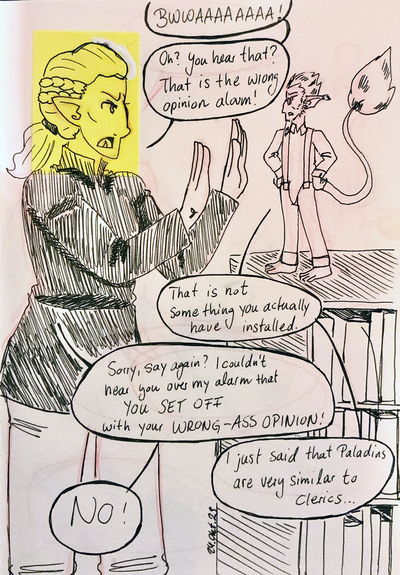 BWWAAAAAAAA!
Oh? You hear that?
That is the wrong
opinion alarm!
That is not
something you actually
have installed.
Sorry, say again? I couldn't
hear you over my alarm that
YOU SET OFF
with your WRONG-ASS OPINION!
I just said that Paladins
are very similar to
Clerics...
No!